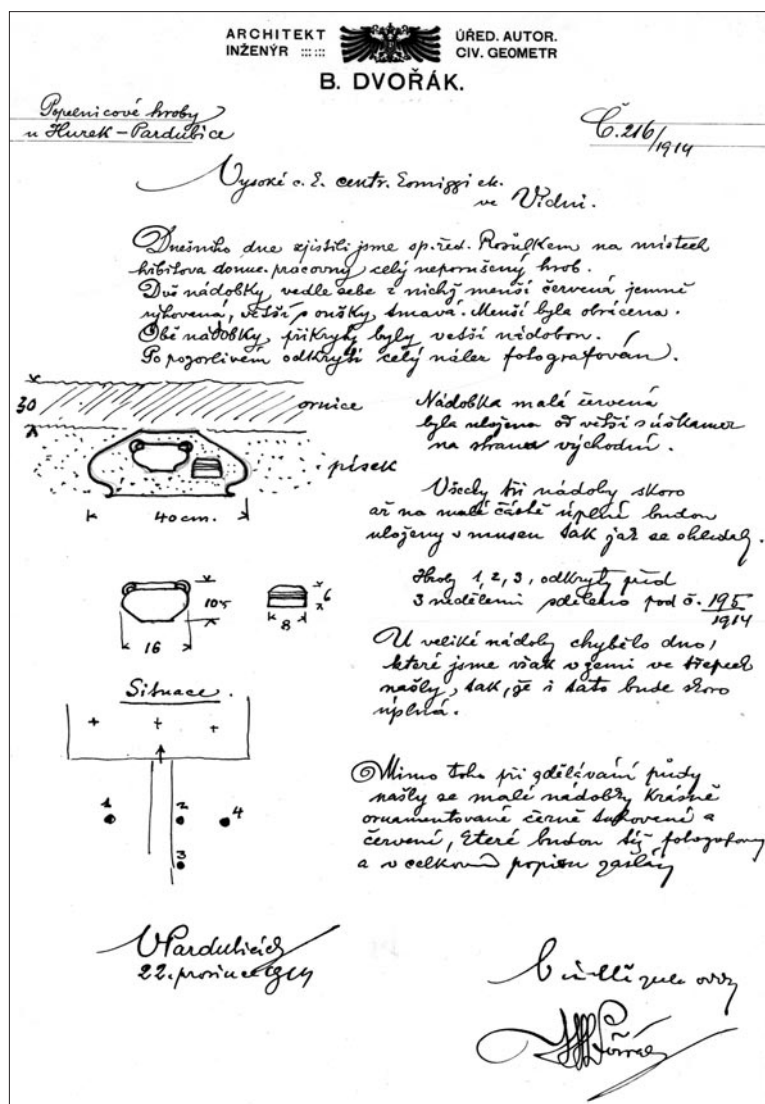 ARCHITEKT
INŽENÝR
ÚŘED. AUTOR.
CIV. GEOMETR
B. DVOŘÁK.
Popelnicové hroby
u Hurek – Pardubice
Č. 216/1914
Vysoké c. k. centr.
ve Vídni.
Dnešního dne zjistili jsme sp. řed. Rosůlkem na místech
hřbitova pracovny celý neporušený hrob.
Dvě nádobky vedle sebe z nichž menší červená jemně
rýhovaná, větší s oušky, tmavá. Menší byla obrácena.
Obě nádobky přikryty byly větší nádobou.
Po pozorlivém odkrytí celý nález fotografován.
30
ornice
písek
40 cm.
Nádobka malá červená
byla uložena od větší s
na straně východní.
Všecky tři nádoby skoro
až na malé části úplné budou
uloženy v museu tak jak se shledaly.
16
8
6
Hroby 1, 2, 3, odkryty před
3 nedělemi sděleno pod č. 195/1914
U veliké nádoby chybělo dno,
které jsme však v zemi ve střepech
našly, tak, že i tato bude skoro
úplná.
Situace.
1
2
4
3
Mimo toho při zdělávání půdy
našly se malé nádobky krásně
ornamentované černě tuhované a
červené, které budou též fotografovány
a v celkovém popisu zaslány
V Pardubicích
22. prosince 1914